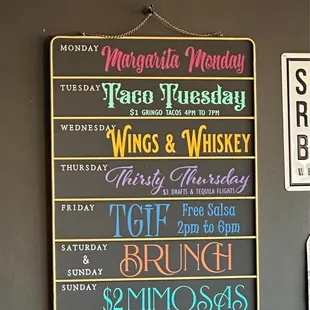 MONDAY
Margarita Monday
TUESDAY
Taco Tuesday
$1 GRINGO TACOS 4PM TO 7PM
WEDNESDAY
WINGS & WHISKEY
THURSDAY
Thirsty Thursday
$3 DRAFTS & TEQUILA FLIGHTS
FRIDAY
TGIF
Free Salsa
2pm to 6pm
SATURDAY
&
SUNDAY
BRUNCH
SUNDAY
$2 MIMOSAS
S
R
B